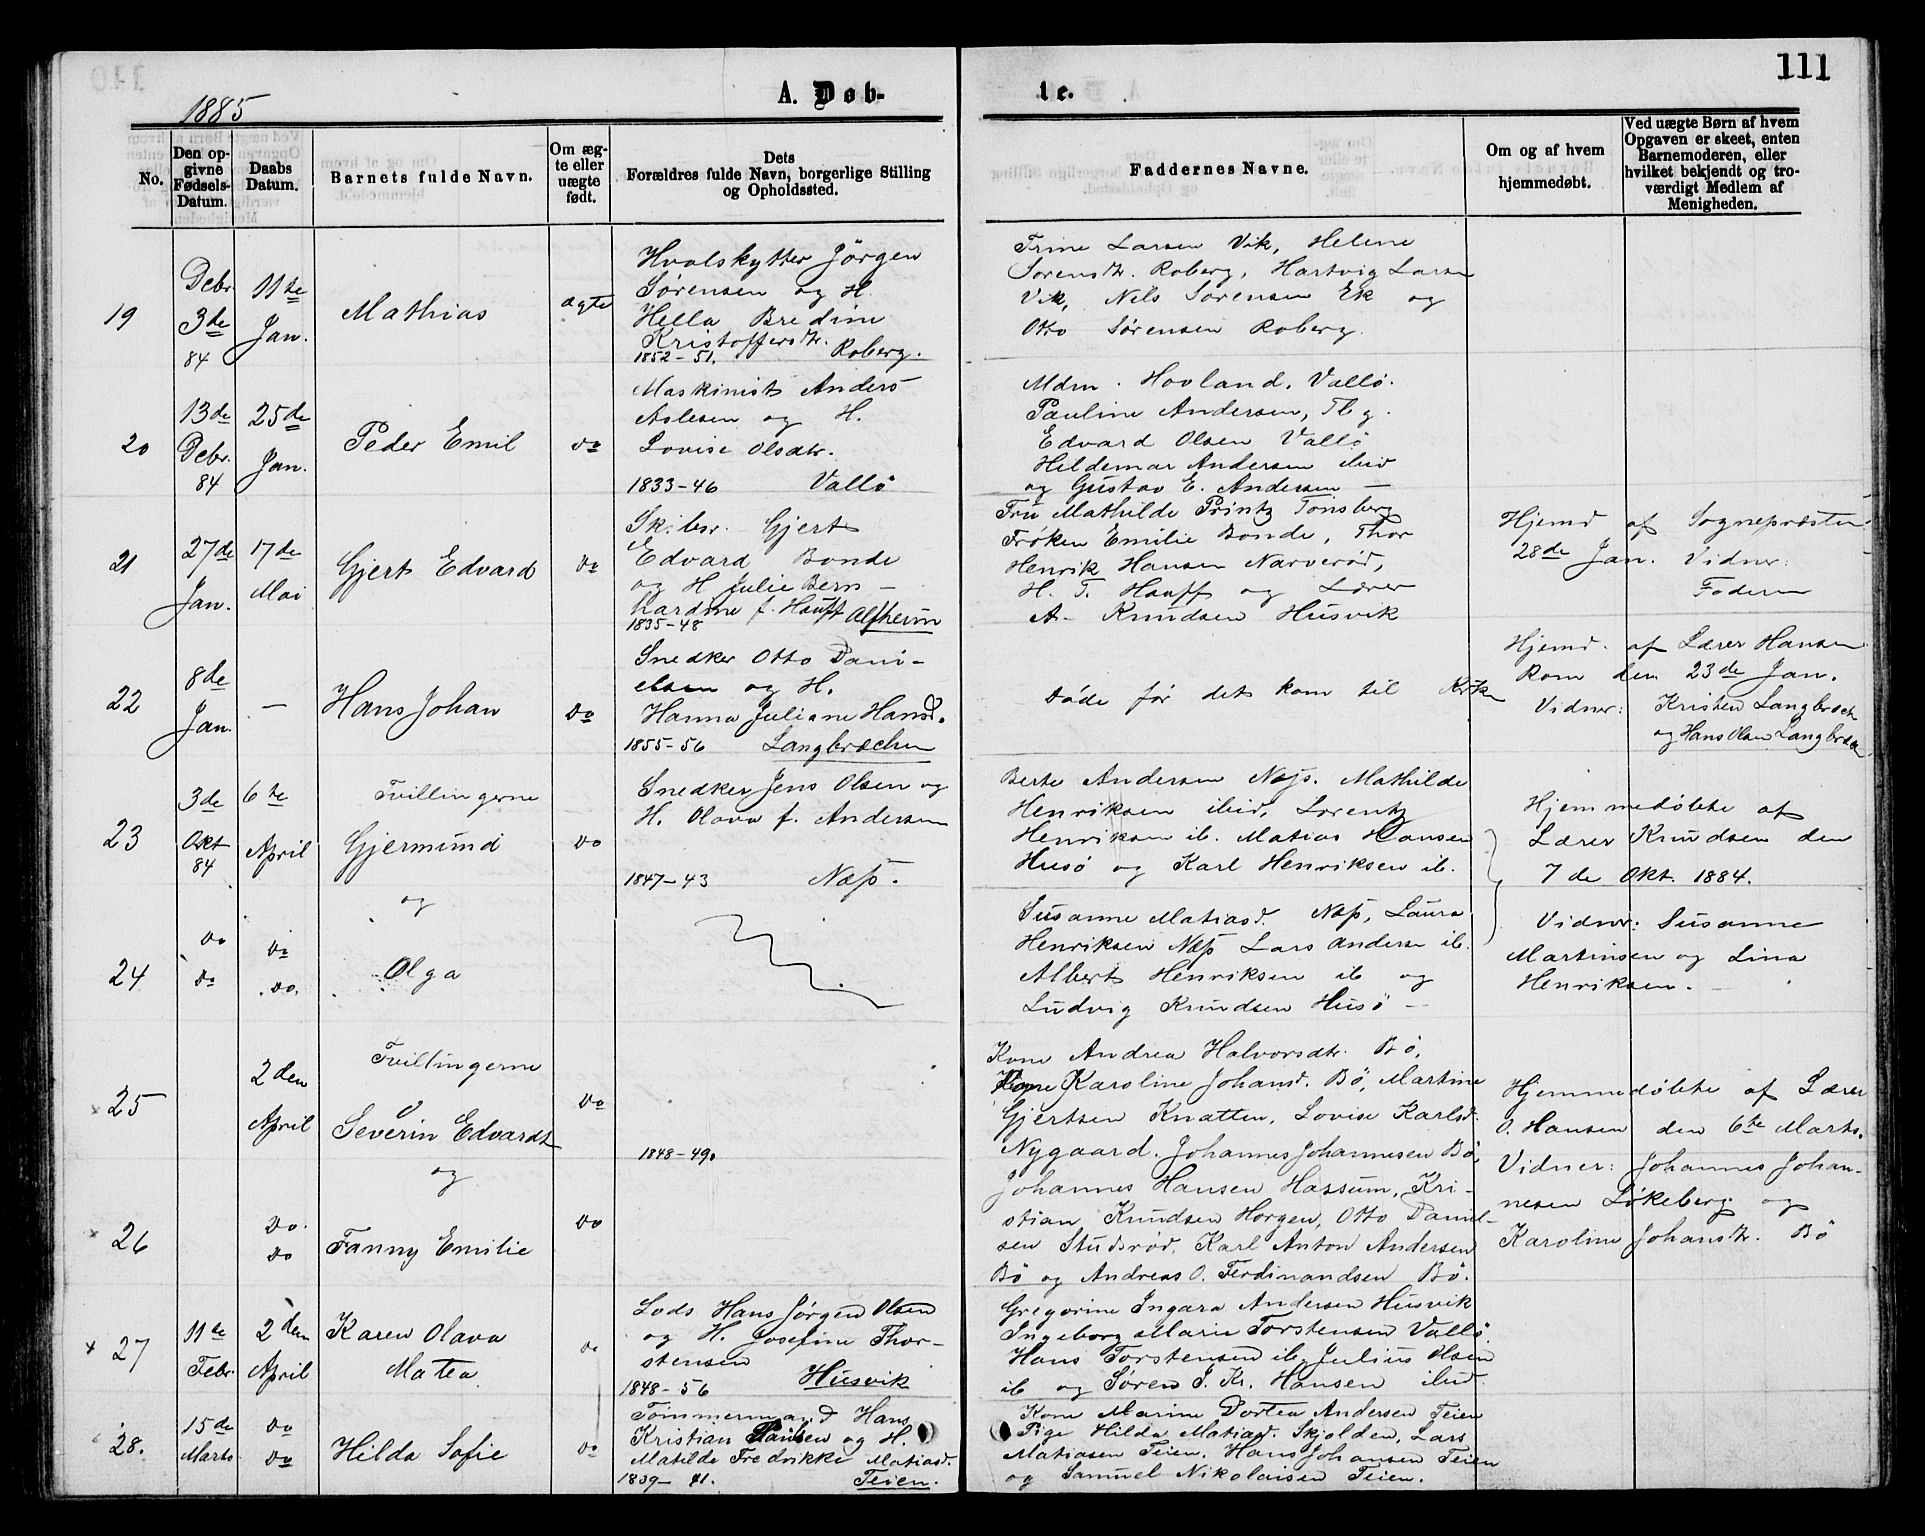 111
1885
A. Døb-
te.
No.
Den op-
givne
Fødsels-
Datum.
Daabs
Datum.
Barnets fulde Navn.
Om æg-
te eller
uægte
født.
Dets
Forældres fulde Navn, borgerlige Stilling
og Opholdssted.
Faddernes Navne.
Om og af hvem
hjemmedøbt.
Ved uægte Børn af hvem
Opgaven er skeet, enten
Barnemoderen, eller
hvilket bekjendt og tro-
værdigt Medlem af
Menigheden.
19
Debr.
3de
84
11te
Jan.
Mathias
ægte
Hvalskytter Jörgen
Sørensen og H.
Hella Bredine
Kristoffersdtr.
1852-51. Roberg.
Trine Larsen Vik, Helene
Sorensdtr. Roberg, Hartvig Larsen
Vik, Nils Sorensen Ek og
Otto Sørensen Roberg.
20
13de
Debr.
84
25de
Jan.
Peder Emil
do
Maskinist Anders
Aslesen og H.
Lovise Olsdtr.
1833-46 Vallö
Mdm. Hovland, Vallö.
Pauline Andersen, Tbg.
Edvard Olsen Vallö
Hildemar Andersen ibid
og Gustav E. Andersen —
21
27de
Jan.
17de
Mai
Gjert Edvard
do
Sk.bsr. Gjert
Edvard Bonde
og H Julie Bern-
hardine f. Hauff Alfheim
1835-48
Fru Mathilde Printz Tönsberg
Frøken Emilie Bonde, Thor
Henrik Hansen Narverød,
H. T. Hauff og Lærer
A. Knudsen Husvik
Hjemd af Sognepræsten
28de Jan. Vidner:
Faderen
22
8de
Jan.
—
Hans Johan
do
Snedker Otto Dani-
elsen og H.
Hanna Juliane Hansd.
1855-56 Langbrækken
Döde før det kom til Kirke
Hjemd. af Lærer Hansen
Rom den 23de Jan.
Vidner: Kristen Langbræk
og Hans Olsen Langbræk
23
3de
Okt
84
6te
April
Tvillingerne
Gjermund
og
do
Snedker Jens Olsen og
H. Olava f. Andersen
1847-43 Næs.
Berte Andersen Næs. Mathilde
Henriksen ibid, Lorentz
Henriksen ib. Matias Hansen
Husö og Karl Henriksen ib.
Hjemmedöbte af
Lærer Knudsen den
7de Okt. 1884.
24
do
do
do
do.
Olga
Susanne Matiasd. Næs, Laura
Henriksen Næs Lars Anderse ib.
Albert Henriksen ib og
Ludvig Knudsen Husö —
Vidner: Susanne
Martinsen og Lina
Henriksen. —
25
2den
April
Tvillingerne
Severin Edvardt
og
do
1848-49.
Kone Andrea Halvorsdtr. Bö,
Karoline Johansd. Bö, Martine
Gjertsen Knatten, Lovise Karlsd.
Nygaard. Johannes Johannesen Bö,
Johannes Hansen Hassum, Kri-
stian Knudsen Horgen, Otto Daniel-
sen Studsröd, Karl Anton Andersen
Bö og Andreas O. Ferdinandsen Bö.
Hjemmedöbte af Lærer
O. Hansen den 6te Marts.
Vidner: Johannes Johan-
nesen Lökeberg og
Karoline Johansdtr. Bö
26
do.
do
Fanny Emilie
do
27
11te
Febr.
2den
April
Karen Olava
Matea
do
Lods Hans Jørgen Olsen
og H. Josefine Thor-
stensen
1848-56 Husvik
Gregorine Ingara Andersen Husvik
Ingeborg Marie Torstensen Vallö.
Hans Torstensen ib, Julius Olsen
ib og Søren J. Kr. Hansen ibid
28.
15de
Marts
do
do
Hilda Sofie
do
Tømmermand Hans
Kristian Paulsen og H.
Matilde Fredrikke Matiasd.
1839-41. Teien.
Kone Marine Dortea Andersen Teien
Pige Hilda Matiasd. Skjolden, Lars
Matiasen Teien, Hans Johansen Teien
og Samuel Nikolaisen Teien.